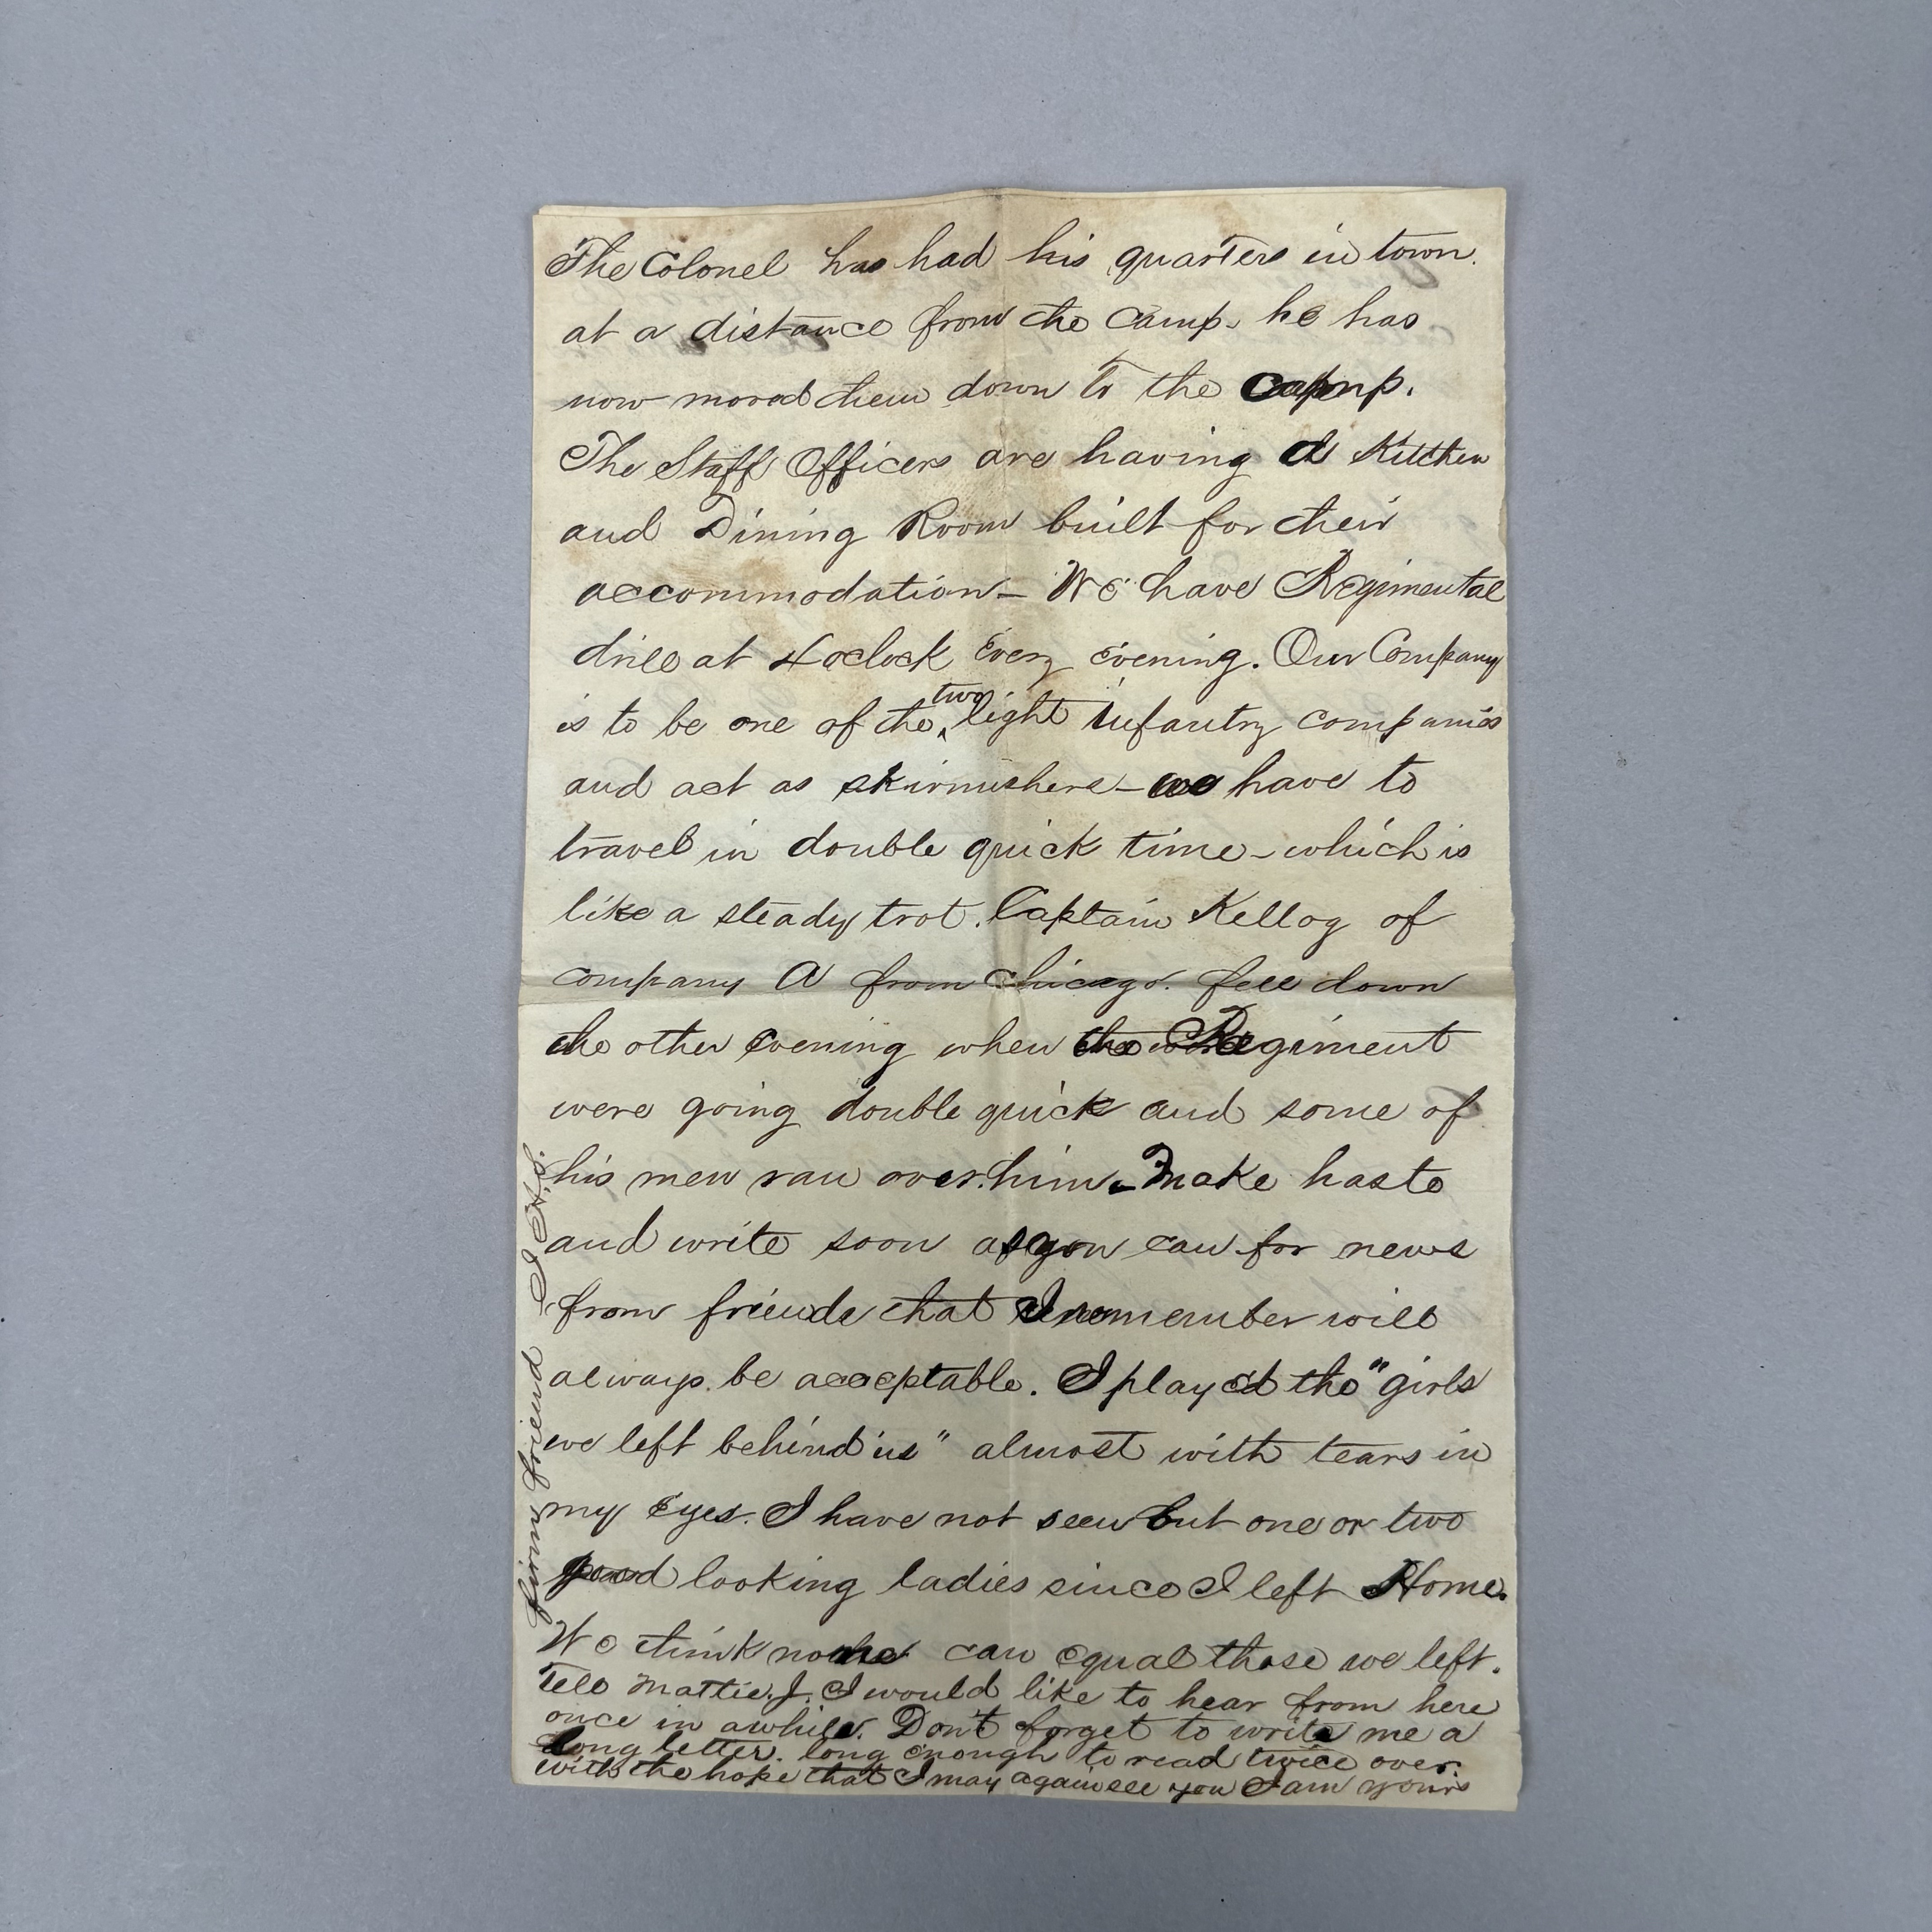 The Colonel has had his quarters in town.
at a distance from the Camp. he has
now moved them down to the camp.
The Staff Officers are having a Kitchen
and Dining Room built for their
accommodation – We have Regimental
drill at 4 oclock Every evening. Our Company
is to be one of the two light infantry companies
and act as skirmishers – we have to
travel in double quick time – which is
like a steady trot. Captain Kellog of
company A from Chicago. fell down
the other evening when the Regiment
were going double quick and some of
his men ran over him – Make haste
and write soon as you can for news
from friends that I remember will
always be acceptable. I played the "girls
we left behind us" almost with tears in
my Eyes. I have not seen but one or two
good looking ladies since I left Home.
We think none can equal those we left.
Tell Mattie. J. I would like to hear from here
once in awhile. Don't forget to write me a
long letter. long enough to read twice over.
with the hope that I may again see you I am yours